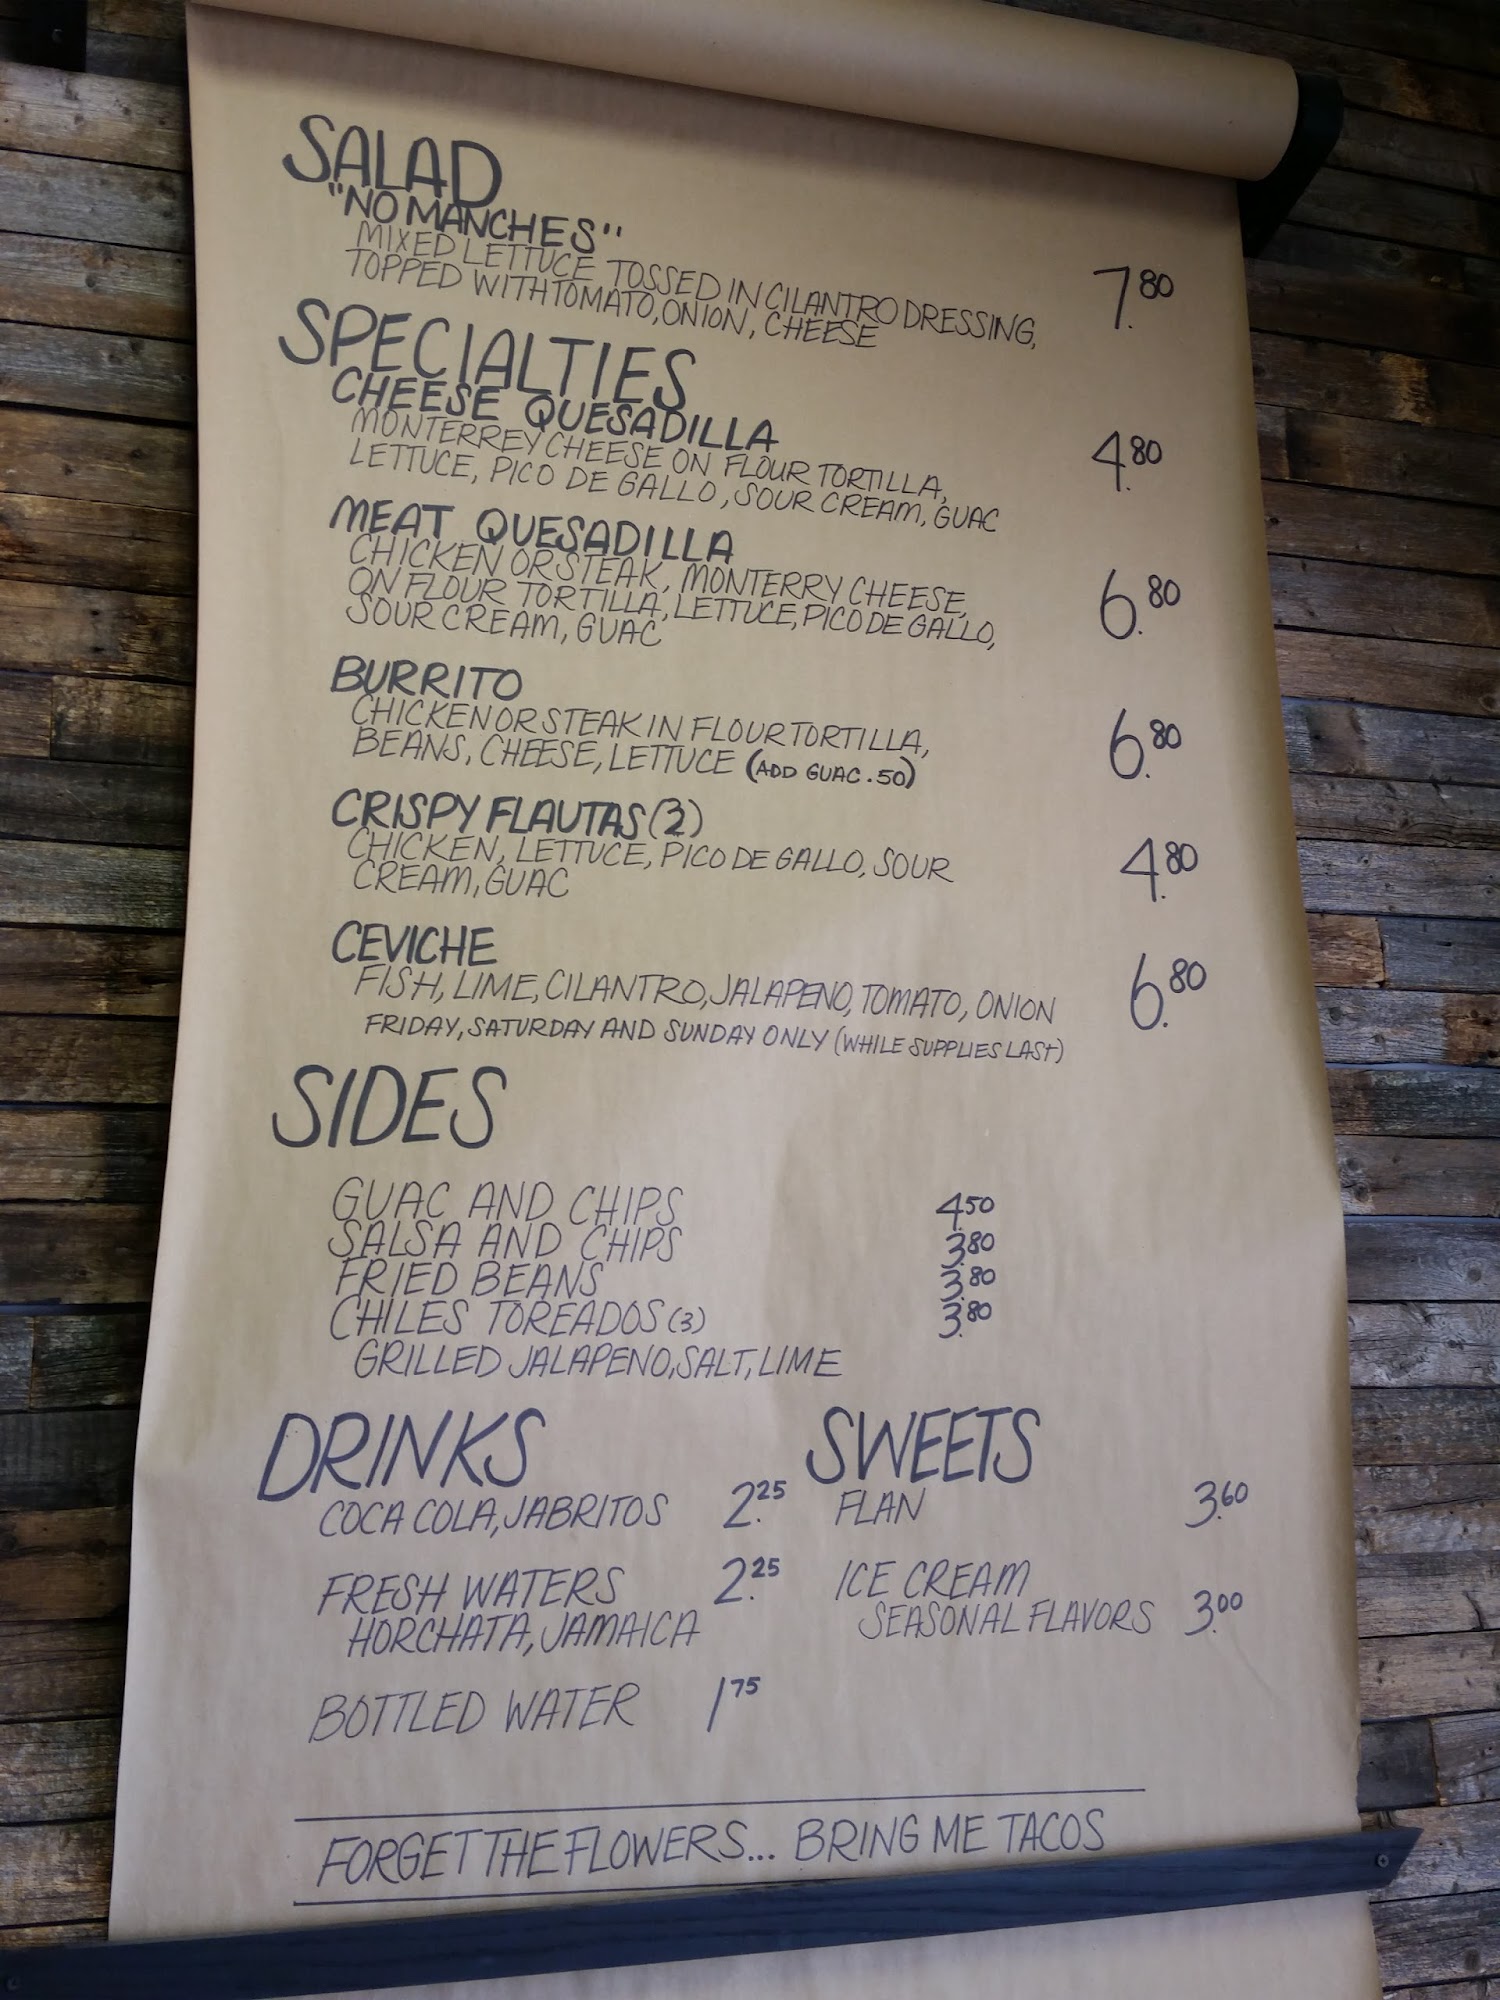 SALAD
"NO MANCHES"
MIXED LETTUCE TOSSED IN CILANTRO DRESSING, 7.80
TOPPED WITH TOMATO, ONION, CHEESE
SPECIALTIES
CHEESE QUESADILLA
MONTERREY CHEESE ON FLOUR TORTILLA, 4.80
LETTUCE, PICO DE GALLO, SOUR CREAM, GUAC
MEAT QUESADILLA
CHICKEN OR STEAK, MONTERRY CHEESE, 6.80
ON FLOUR TORTILLA, LETTUCE, PICO DE GALLO,
SOUR CREAM, GUAC
BURRITO
CHICKEN OR STEAK IN FLOUR TORTILLA, 6.80
BEANS, CHEESE, LETTUCE (ADD GUAC .50)
CRISPY FLAUTAS (3)
CHICKEN, LETTUCE, PICO DE GALLO, SOUR 4.80
CREAM, GUAC
CEVICHE
FISH, LIME, CILANTRO, JALAPENO, TOMATO, ONION 6.80
FRIDAY, SATURDAY AND SUNDAY ONLY (WHILE SUPPLIES LAST)
SIDES
GUAC AND CHIPS 4.50
SALSA AND CHIPS 3.80
FRIED BEANS 3.80
CHILES TOREADOS (3) 3.80
GRILLED JALAPENO, SALT, LIME
DRINKS
COCA COLA, JABRITOS 2.25
FRESH WATERS 2.25
HORCHATA, JAMAICA
BOTTLED WATER 1.75
SWEETS
FLAN 3.60
ICE CREAM
SEASONAL FLAVORS 3.00
FORGET THE FLOWERS... BRING ME TACOS